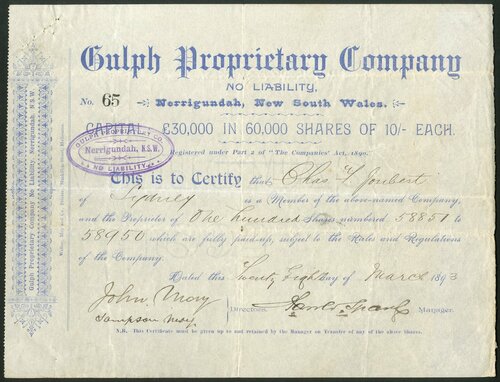 Gulph Proprietary Company
NO LIABILITY,
No. 65 Nerrigundah, New South Wales.
CAPITAL £30,000 IN 60,000 SHARES OF 10/- EACH.
Registered under Part 2 of "The Companies' Act, 1890.
GULPH PROPRIETARY CO.
Nerrigundah, N.S.W.
NO LIABILITY
This is to Certify that Chas F Joubert
of Sydney is a Member of the above-named Company,
and the Proprietor of One hundred Shares numbered 58851 to
58950 which are fully paid-up, subject to the Rules and Regulations
of the Company.
Dated this Twenty Eight day of March 1893
John Mory
Sampson Mory
Directors.
Manager.
N.B. This Certificate must be given up to and retained by the Manager on Transfer of any of the above shares.
Gulph Proprietary Company No Liability, Nerrigundah, N.S.W.